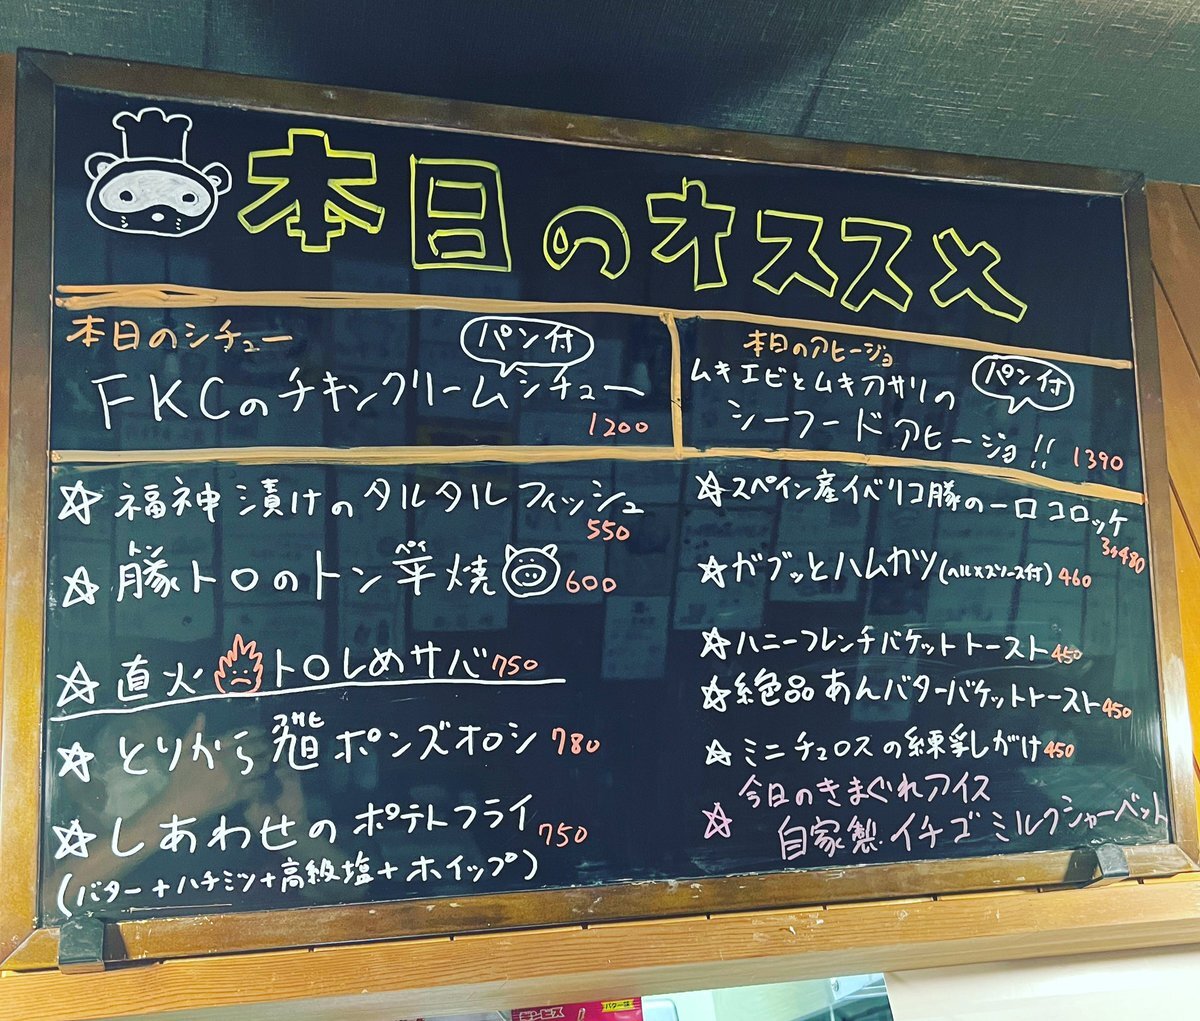 本日のオススメ
本日のシチュー
パン付
FKCのチキンクリームシチュー
1200
本日のアヒージョ
パン付
ムキエビとムキアサリの
シーフードアヒージョ!!
1390
☆福神漬けのタルタルフィッシュ
550
トン ペイ
☆豚トロのトン平焼 600
☆直火トロしめサバ 750
アサヒ
☆とりから旭ポンズオロシ 780
☆しあわせのポテトフライ 750
(バター+ハチミツ+高級塩+ホイップ)
☆スペイン産イベリコ豚の一口コロッケ
3ケ480
☆ガブッとハムカツ(ヘルメスソース付) 460
☆ハニーフレンチバケットトースト 450
☆絶品あんバターバケットトースト 450
☆ミニチュロスの練乳しがけ 450
☆今日のきまぐれアイス
自家製イチゴミルクシャーベット
ギンビス
バター味